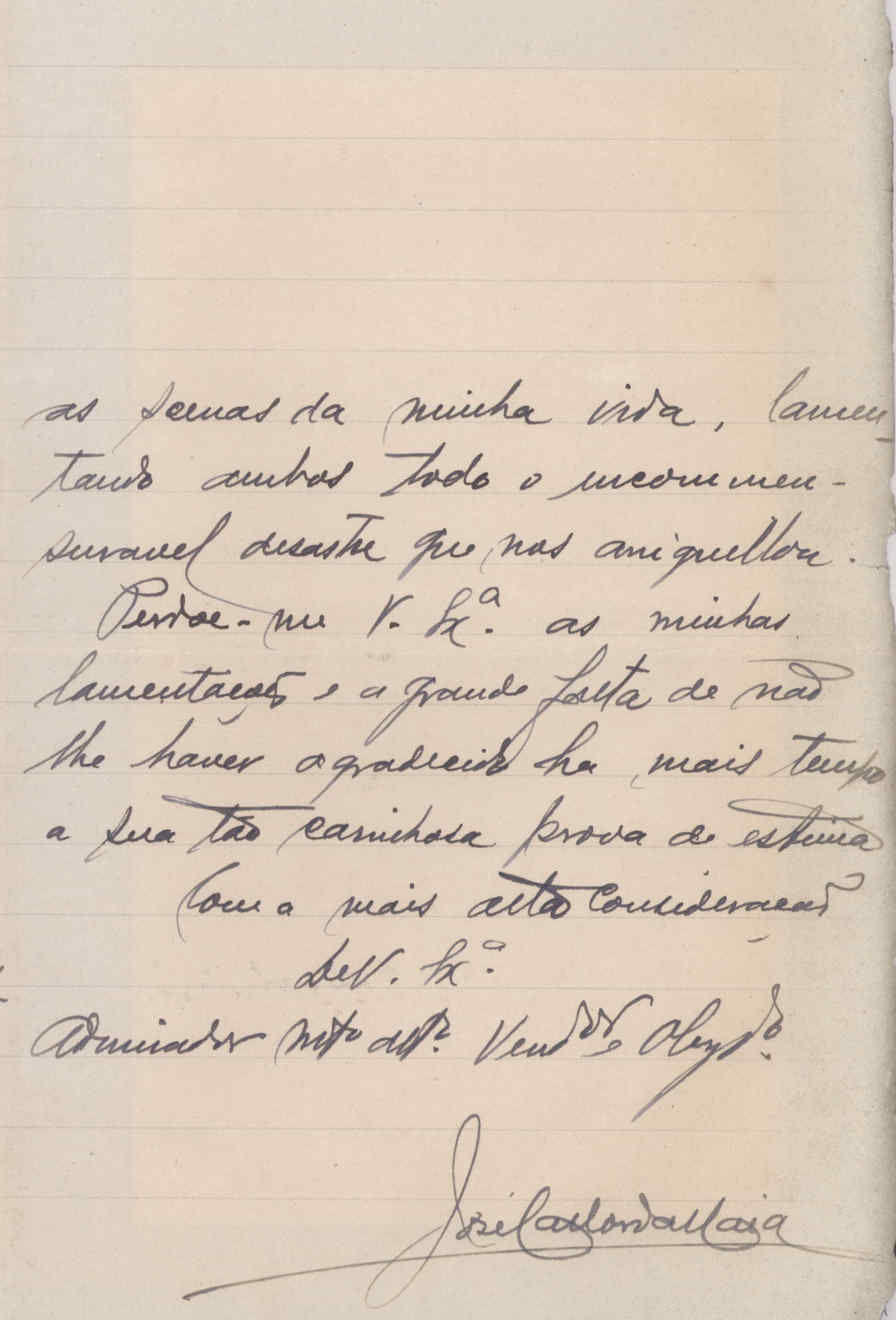 as scenas da minha vida, lamen-
tando ambos todo o incommen-
suravel desastre que nos aniquillou.
Perdoe-me V. Exª. as minhas
lamentações e a grande falta de não
lhe haver agradecido ha mais tempo
a sua tão carinhosa prova de estima
Com a mais alta consideração
De V. Exª.
Admirador mto attº. Vendor e Obgdo.
José Carlos da Maia